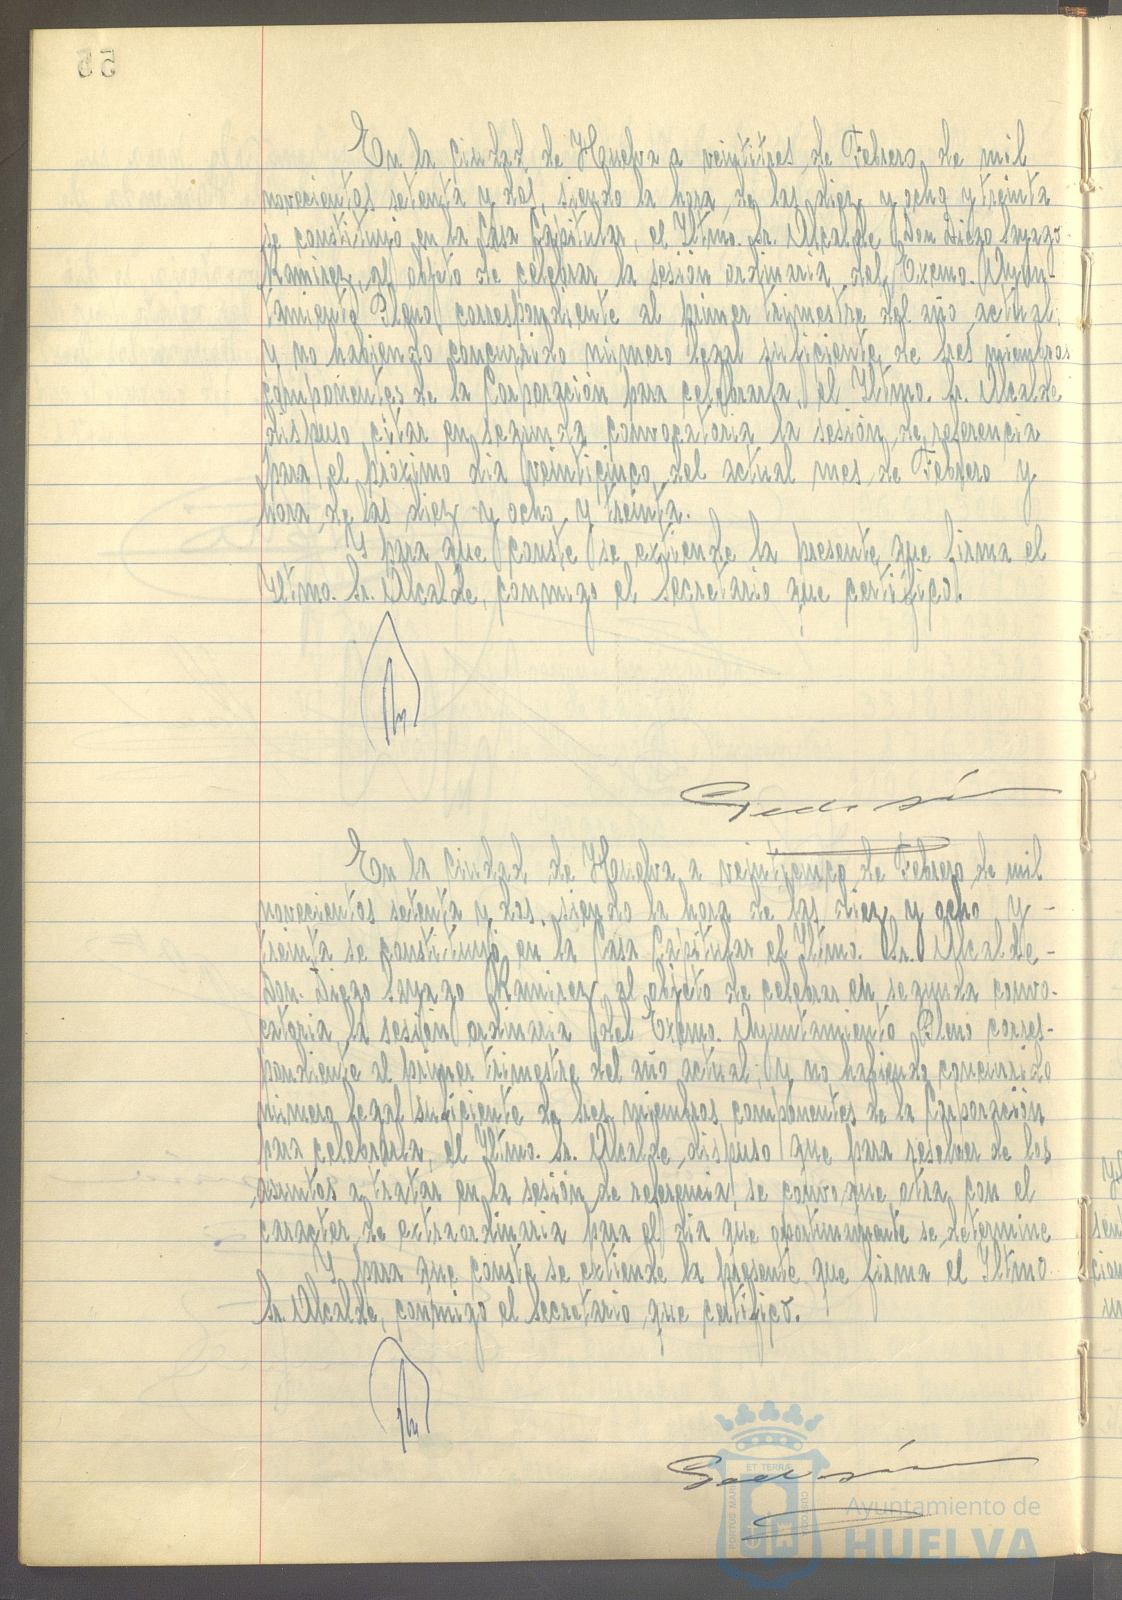 55
En la ciudad de Huelva a veintitres de Febrero de mil
novecientos setenta y dos, siendo la hora de las diez y ocho y treinta
se constituyó en la Casa Capitular, el Iltmo. Sr. Alcalde Don Diego Sayago
Ramirez, al objeto de celebrar la sesión ordinaria del Excmo. Ayun-
tamiento Pleno correspondiente al primer trimestre del año actual;
y no habiendo concurrido número legal suficiente de Sres miembros
componentes de la Corporación para celebrarla, el Iltmo. Sr. Alcalde
dispuso citar en segunda convocatoria la sesión de referencia
para el próximo dia veinticinco del actual mes de Febrero y
hora de las diez y ocho y treinta.
Y para que conste se extiende la presente que firma el
Iltmo. Sr. Alcalde, conmigo el Secretario que certifico.
En la ciudad de Huelva a veinticinco de Febrero de mil
novecientos setenta y dos, siendo la hora de las diez y ocho y -
treinta se constituyó en la Casa Capitular el Iltmo. Sr. Alcalde -
Don Diego Sayago Ramirez, al objeto de celebrar en segunda convo-
catoria la sesión ordinaria del Excmo. Ayuntamiento Pleno corres-
pondiente al primer trimestre del año actual; y no habiendo concurrido
número legal suficiente de Sres miembros componentes de la Corporación
para celebrarla, el Iltmo. Sr. Alcalde dispuso que para resolver de los
asuntos a tratar en la sesión de referencia, se convoque otra con el
caracter de extraordinaria para el dia que oportunamente se determine
Y para que conste se extiende la presente que firma el Iltmo
Sr. Alcalde, conmigo el Secretario que certifico.
PORTUS MARIS ET TERRÆ CUSTODIA
Ayuntamiento de
HUELVA